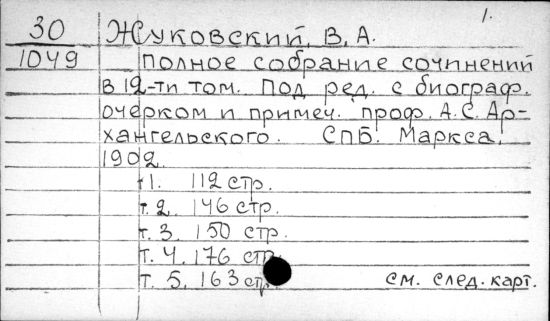 1.
30 Жуковский, В. А.
1049 Полное собрание сочинений
в 12-ти том. Под ред. с биограф.
очерком и примеч. проф. А. С. Ар-
хангельского. СПБ. Маркса,
1902.
т 1. 112 стр.
т. 2. 146 стр.
т. 3. 150 стр.
т. 4. 176 стр.
т. 5. 163 стр. см. след. карт.